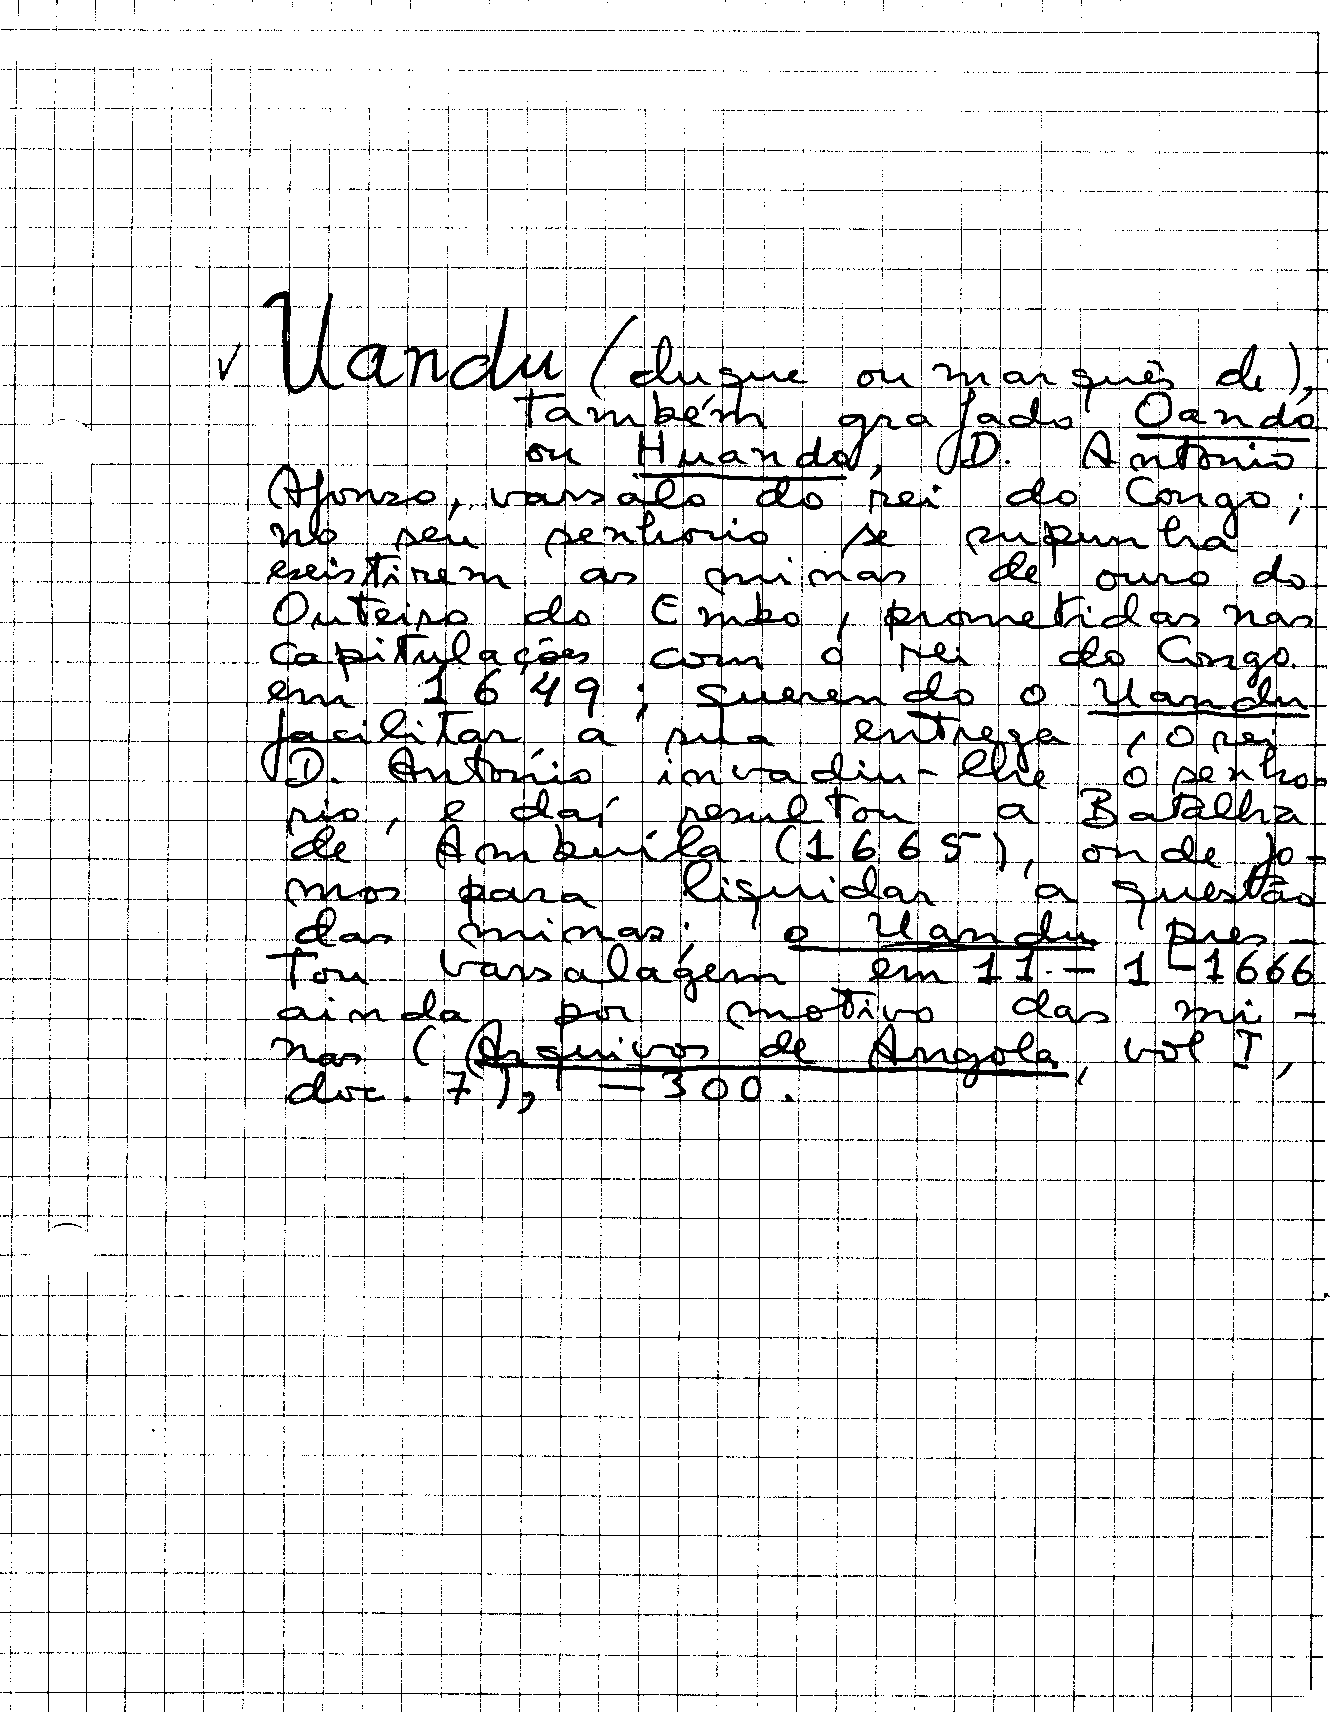 ✓ Uandu (duque ou marquês de),
também grafado Oando
ou Huando, D. Antonio
Afonso, vassalo do rei do Congo;
no seu senhorio se supunha
existirem as minas de ouro do
Outeiro do Embo, prometidas nas
capitulações com o rei do Congo
em 1649; querendo o Uandu
facilitar a sua entrega, o rei
D. António invadiu-lhe o senho-
rio, e daí resultou a Batalha
de Ambuíla (1665), onde fo-
mos para liquidar a questão
das minas; o Uandu pres-
tou vassalagem em 11-1-1666
ainda por motivo das mi-
nas (Arquivos de Angola, vol I,
doc. 7), -300.